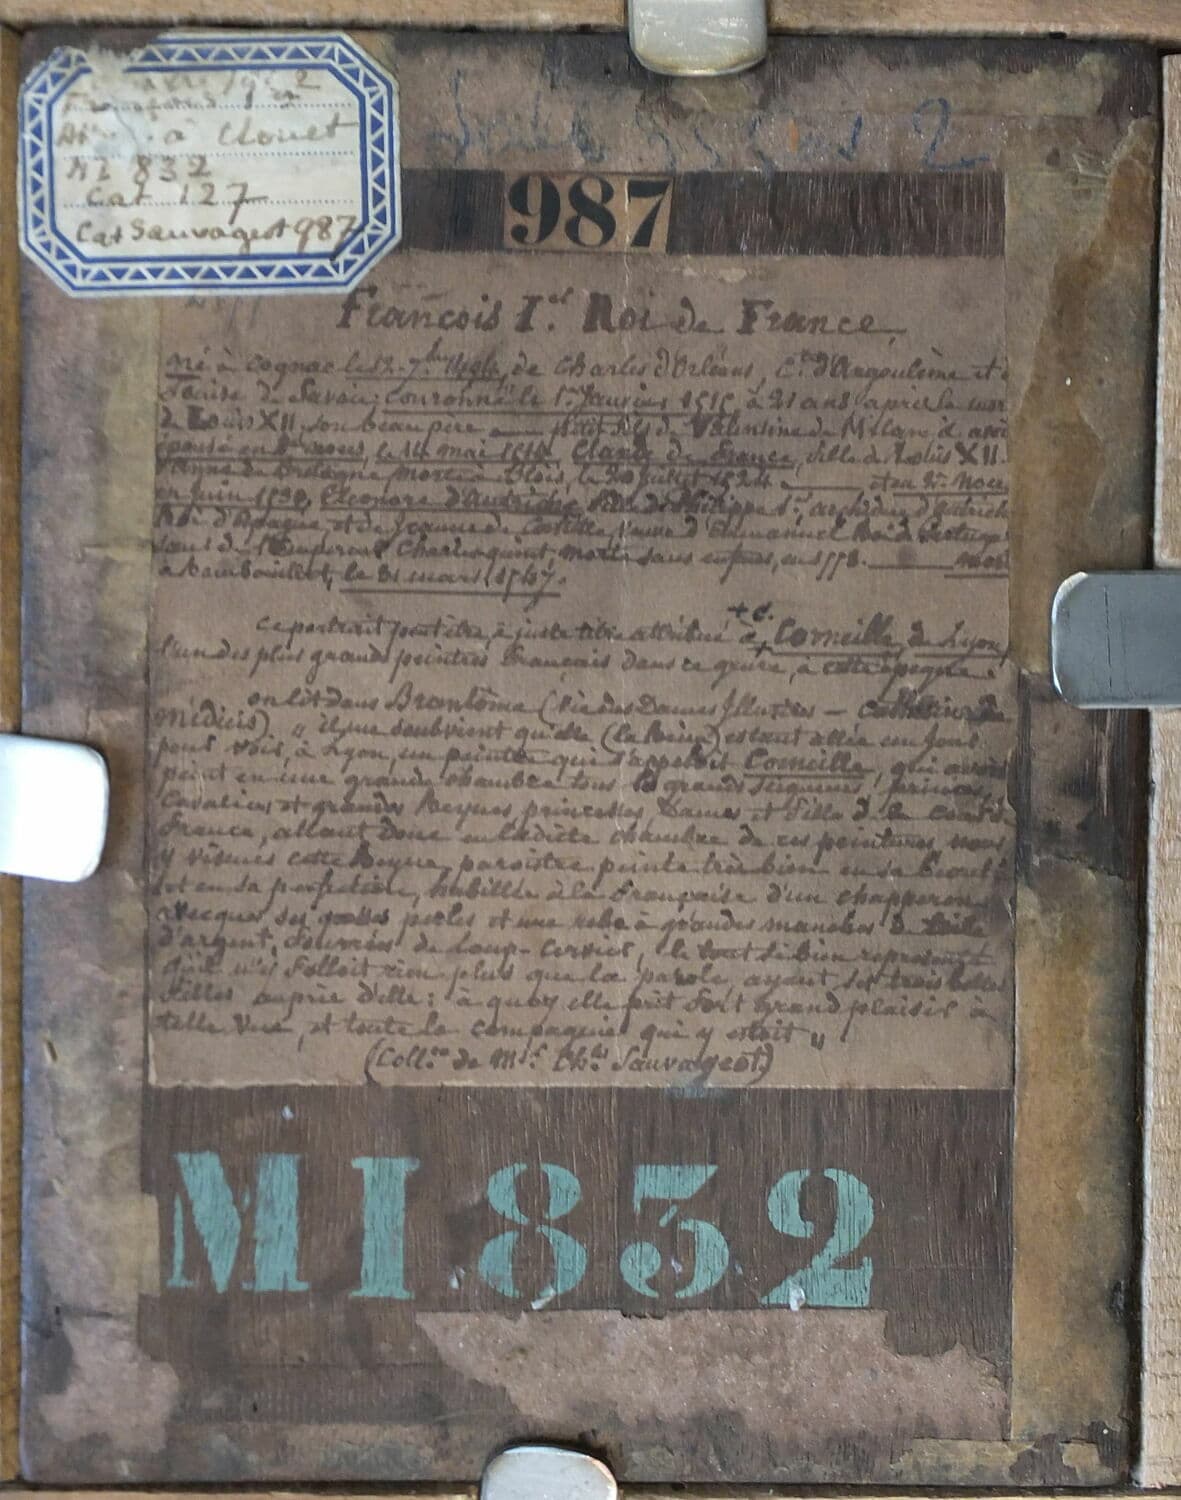 à Clouet
MI 832
Cat 127
Cat Sauvageot 987
2
987
François I.er Roi de France,
né à Cognac le 12. 7.bre 1494, de Charles d'Orléans, C.te d'Angoulême et
Louise de Savoie; couronné le 1.er Janvier 1515, à 21 ans, après la mort
de Louis XII, son beau père petit fils de Valentine de Milan, il avoit
épousé en 1.res noces, le 14 mai 1514, Claude de France, fille de Louis XII.
d'Anne de Bretagne, morte à Blois, le 20 Juillet 1524. et en 2.es noces
en Juin 1530, Eléonore d'Autriche, fille de Philippe 1.er, archiduc d'Autriche
Roi d'Espagne, et de Jeanne de Castille, veuve d'Emmanuel Roi de Portugal
sœur de l'Empereur Charles quint, morte sans enfans, en 1558. mort
à Rambouillet, le 31 mars 1547.
ce portrait peut être, à juste titre attribué à Corneille de Lyon,
l'un des plus grands peintres français dans ce genre, à cette époque.
on lit dans Brantôme (Vie des Dames Illustres — Catherine de
Médicis), " il me soubvient qu'elle (la Reine) estant allée un jour
pour voir, à Lyon, un peintre qui s'appeloit Corneille, qui avoit
peint en une grande chambre tous les grands seigneurs, princes,
Cavaliers et grandes Reynes, princesses, Dames et filles de la Court de
France, estant donc en ladicte chambre de ces peintures, nous
y vismes cette Reyne, paroistre peinte très bien en sa beauté
et en sa perfection, habillée à la Française d'un chapperon
avecques ses grosses perles et une robe à grandes manches de toile
d'argent, fourrées de Loup-Cervier, le tout si bien représenté
qu'il n'y falloit rien plus que la parole, ayant ses trois belles
filles auprès d'elle: à quoy elle prit fort grand plaisir à
telle vue, et toute la compagnie qui y estoit "
(Coll.on de M.r Ch.les Sauvageot)
MI 832